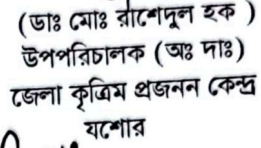 (ডাঃ মোঃ রাশেদুল হক )
উপপরিচালক (অঃ দাঃ)
জেলা কৃত্রিম প্রজনন কেন্দ্র
যশোর